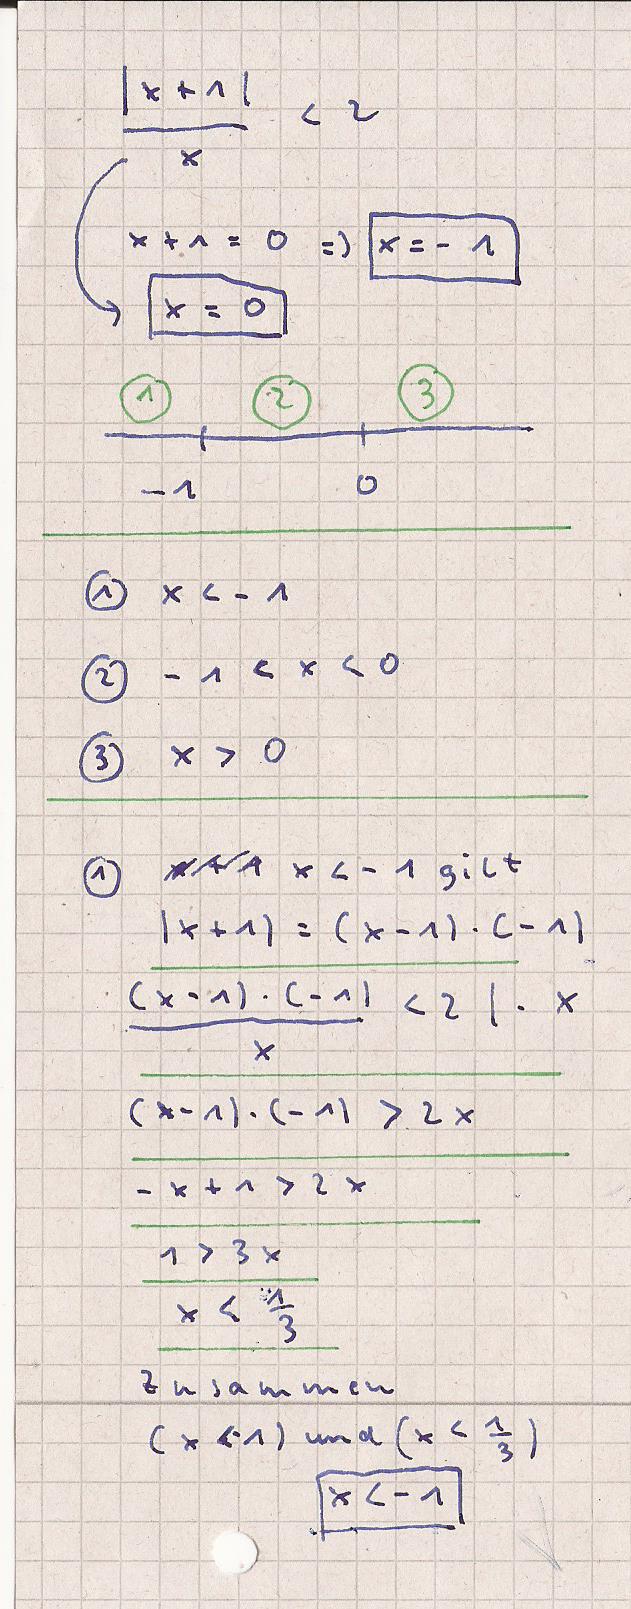 |x+1|
—— < 2
x
x+1 = 0 => x = -1
x = 0
1 2 3
-1 0
1 x < -1
2 -1 < x < 0
3 x > 0
1 x+1 x < -1 gilt
|x+1) = (x-1)·(-1)
(x-1)·(-1)
—— < 2 | · x
x
(x-1)·(-1) > 2x
-x+1 > 2x
1 > 3x
x < 1/3
Zusammen
(x < -1) und (x < 1/3)
x < -1